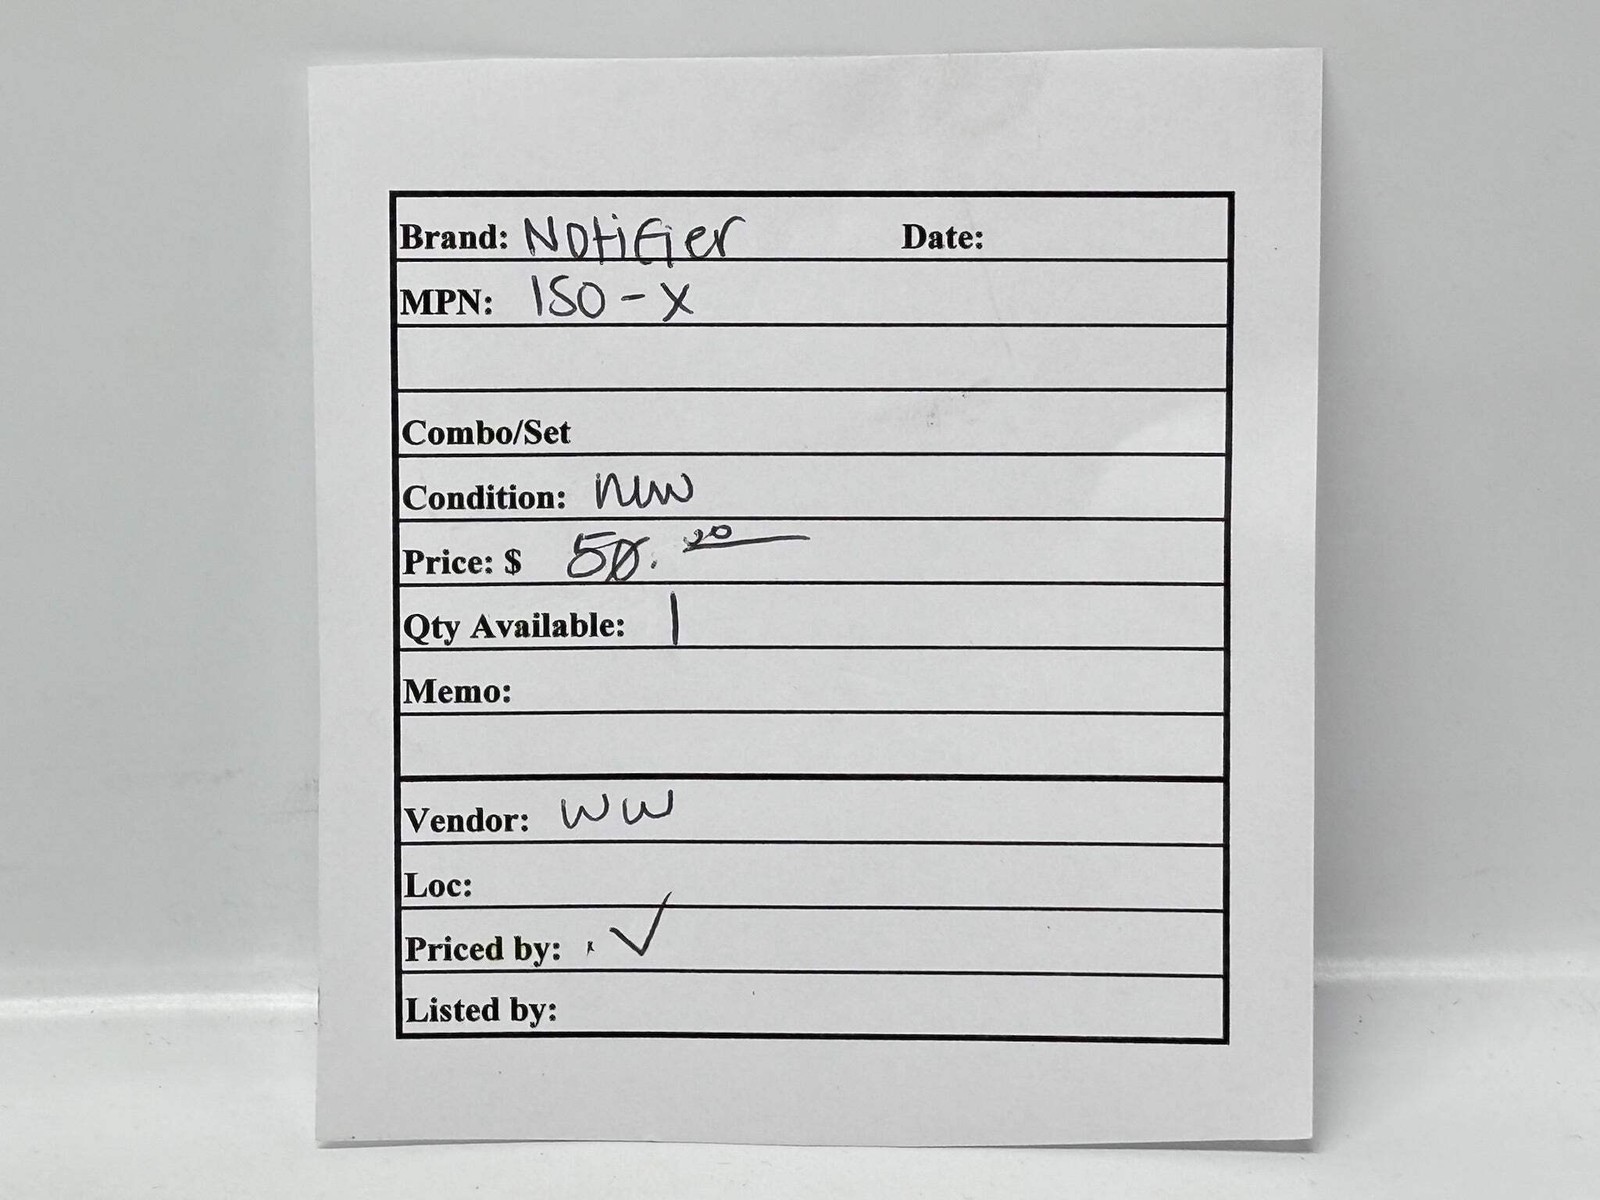 Brand: Notifier Date:
MPN: ISO-X
Combo/Set
Condition: new
Price: $ 50.00
Qty Available: 1
Memo:
Vendor: WW
Loc:
Priced by: ✓
Listed by: